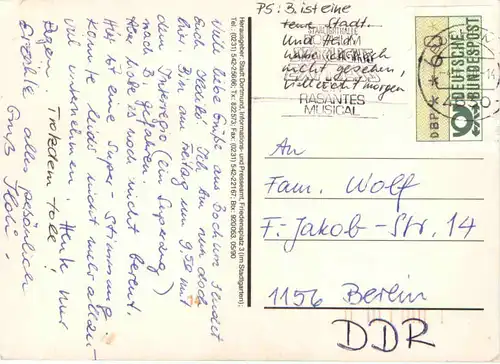 PS: B. ist eine
tolle Stadt.
Und Heidi
habe ich noch
nicht gesehen,
vielleicht morgen
STARLIGHT
RASANTES
MUSICAL
DEUTSCHE
BUNDESPOST
DBP
60
Herausgeber: Stadt Dortmund, Informations- und Presseamt, Friedensplatz 3 (im Stadtgarten),
Tel. (0231) 542-25666; Tx: 822573; Fax: (0231) 542-22167; Btx: 920063. 05/90
Viele liebe Grüße aus Bochum sendet
Euch Ich bin nun doch
hier. Bin am Freitag um 9.50 mit
dem Interregio (ein Superzug)
nach B gefahren.
Ich habe es noch nicht bereut.
Hier ist eine Super-Stimmung.
Konnte leider nicht mehr
unternehmen. nur
Regen. Trotzdem toll!
Erzähle alles persönlich
Gruß
An
Fam. Wolf
F.-Jakob-Str. 14
1156 Berlin
DDR